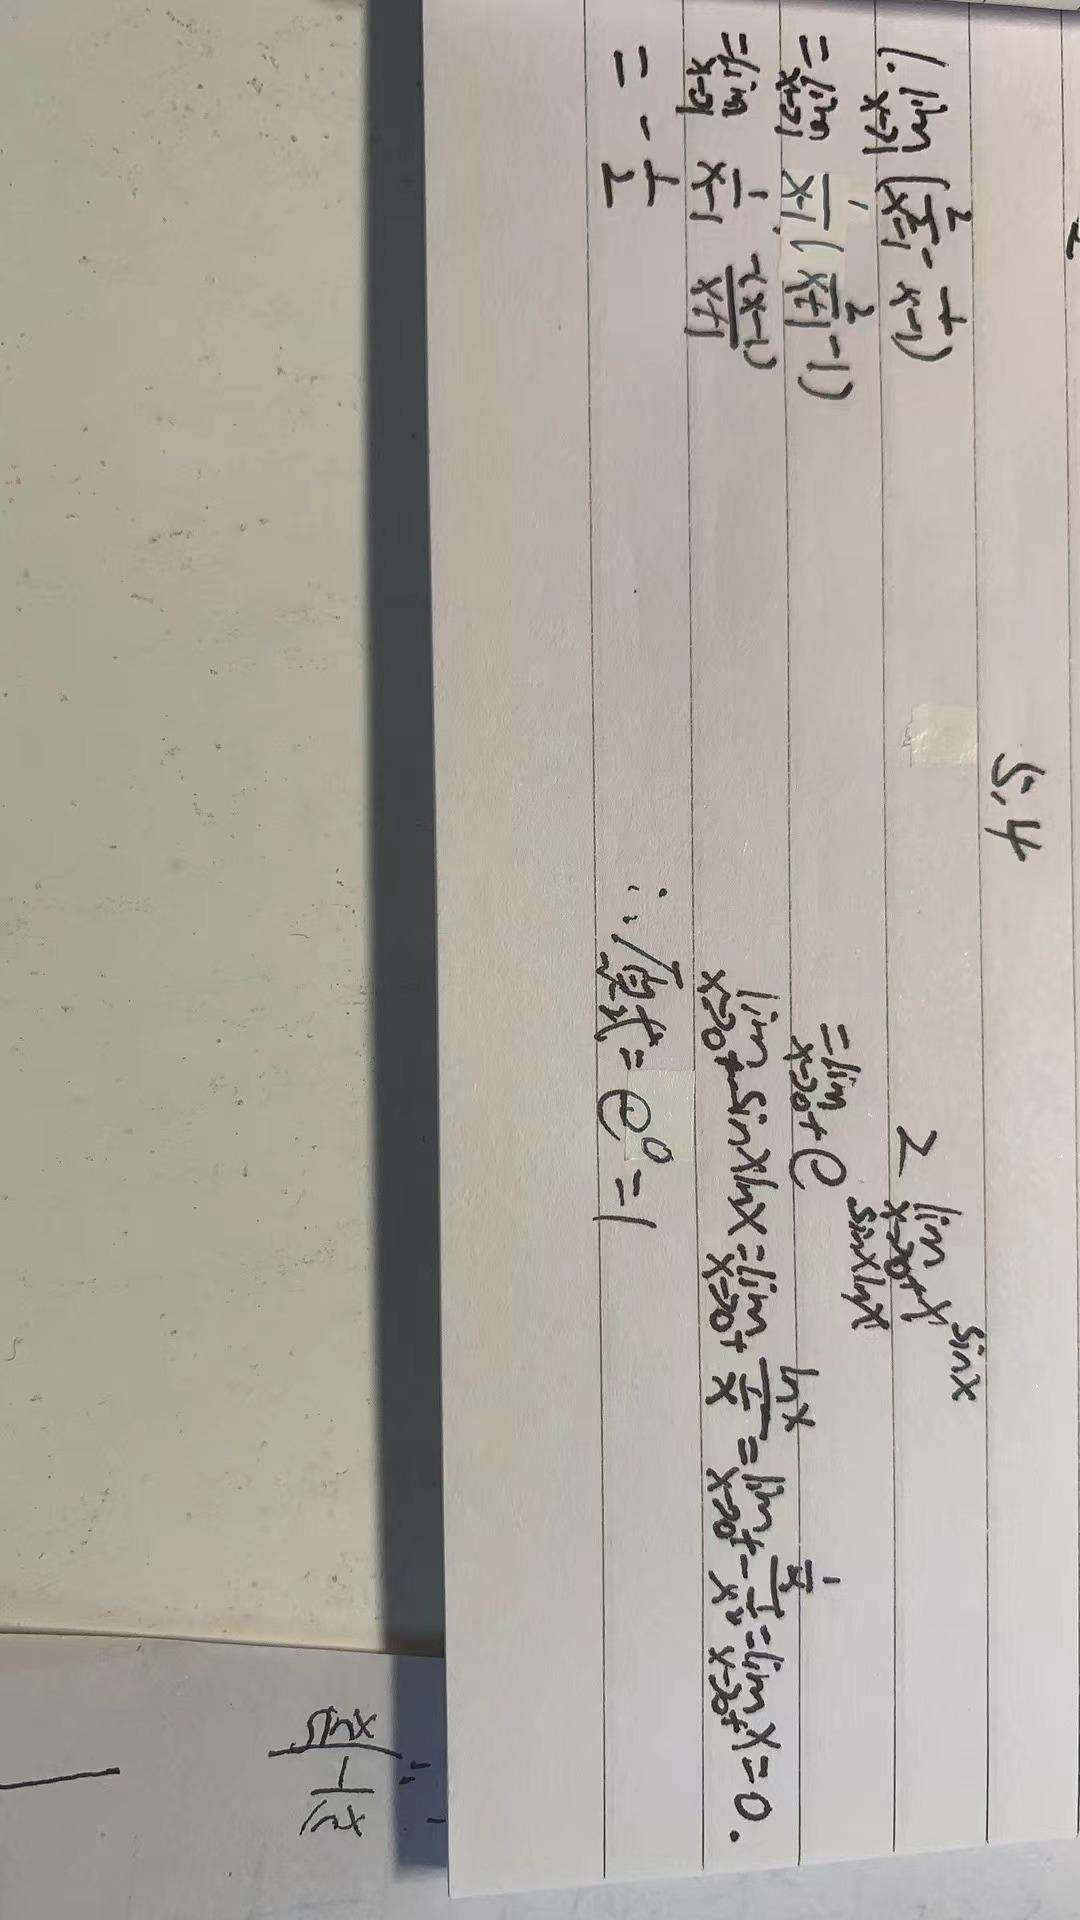 5.4
1. lim x→1 (2/(x²-1) - 1/(x-1))
= lim x→1 1/(x-1) (2/(x+1) - 1)
= lim x→1 1/(x-1) · -(x-1)/(x+1)
= - 1/2
2 lim x→0+ x^sinx
= lim x→0+ e^sinxlnx
lim x→0+ sinxlnx = lim x→0+ lnx/(1/x) = lim x→0+ (1/x)/(-1/x²) = lim x→0+ x = 0.
∴ 原式 = e^0 = 1
sinx/(1/lnx)